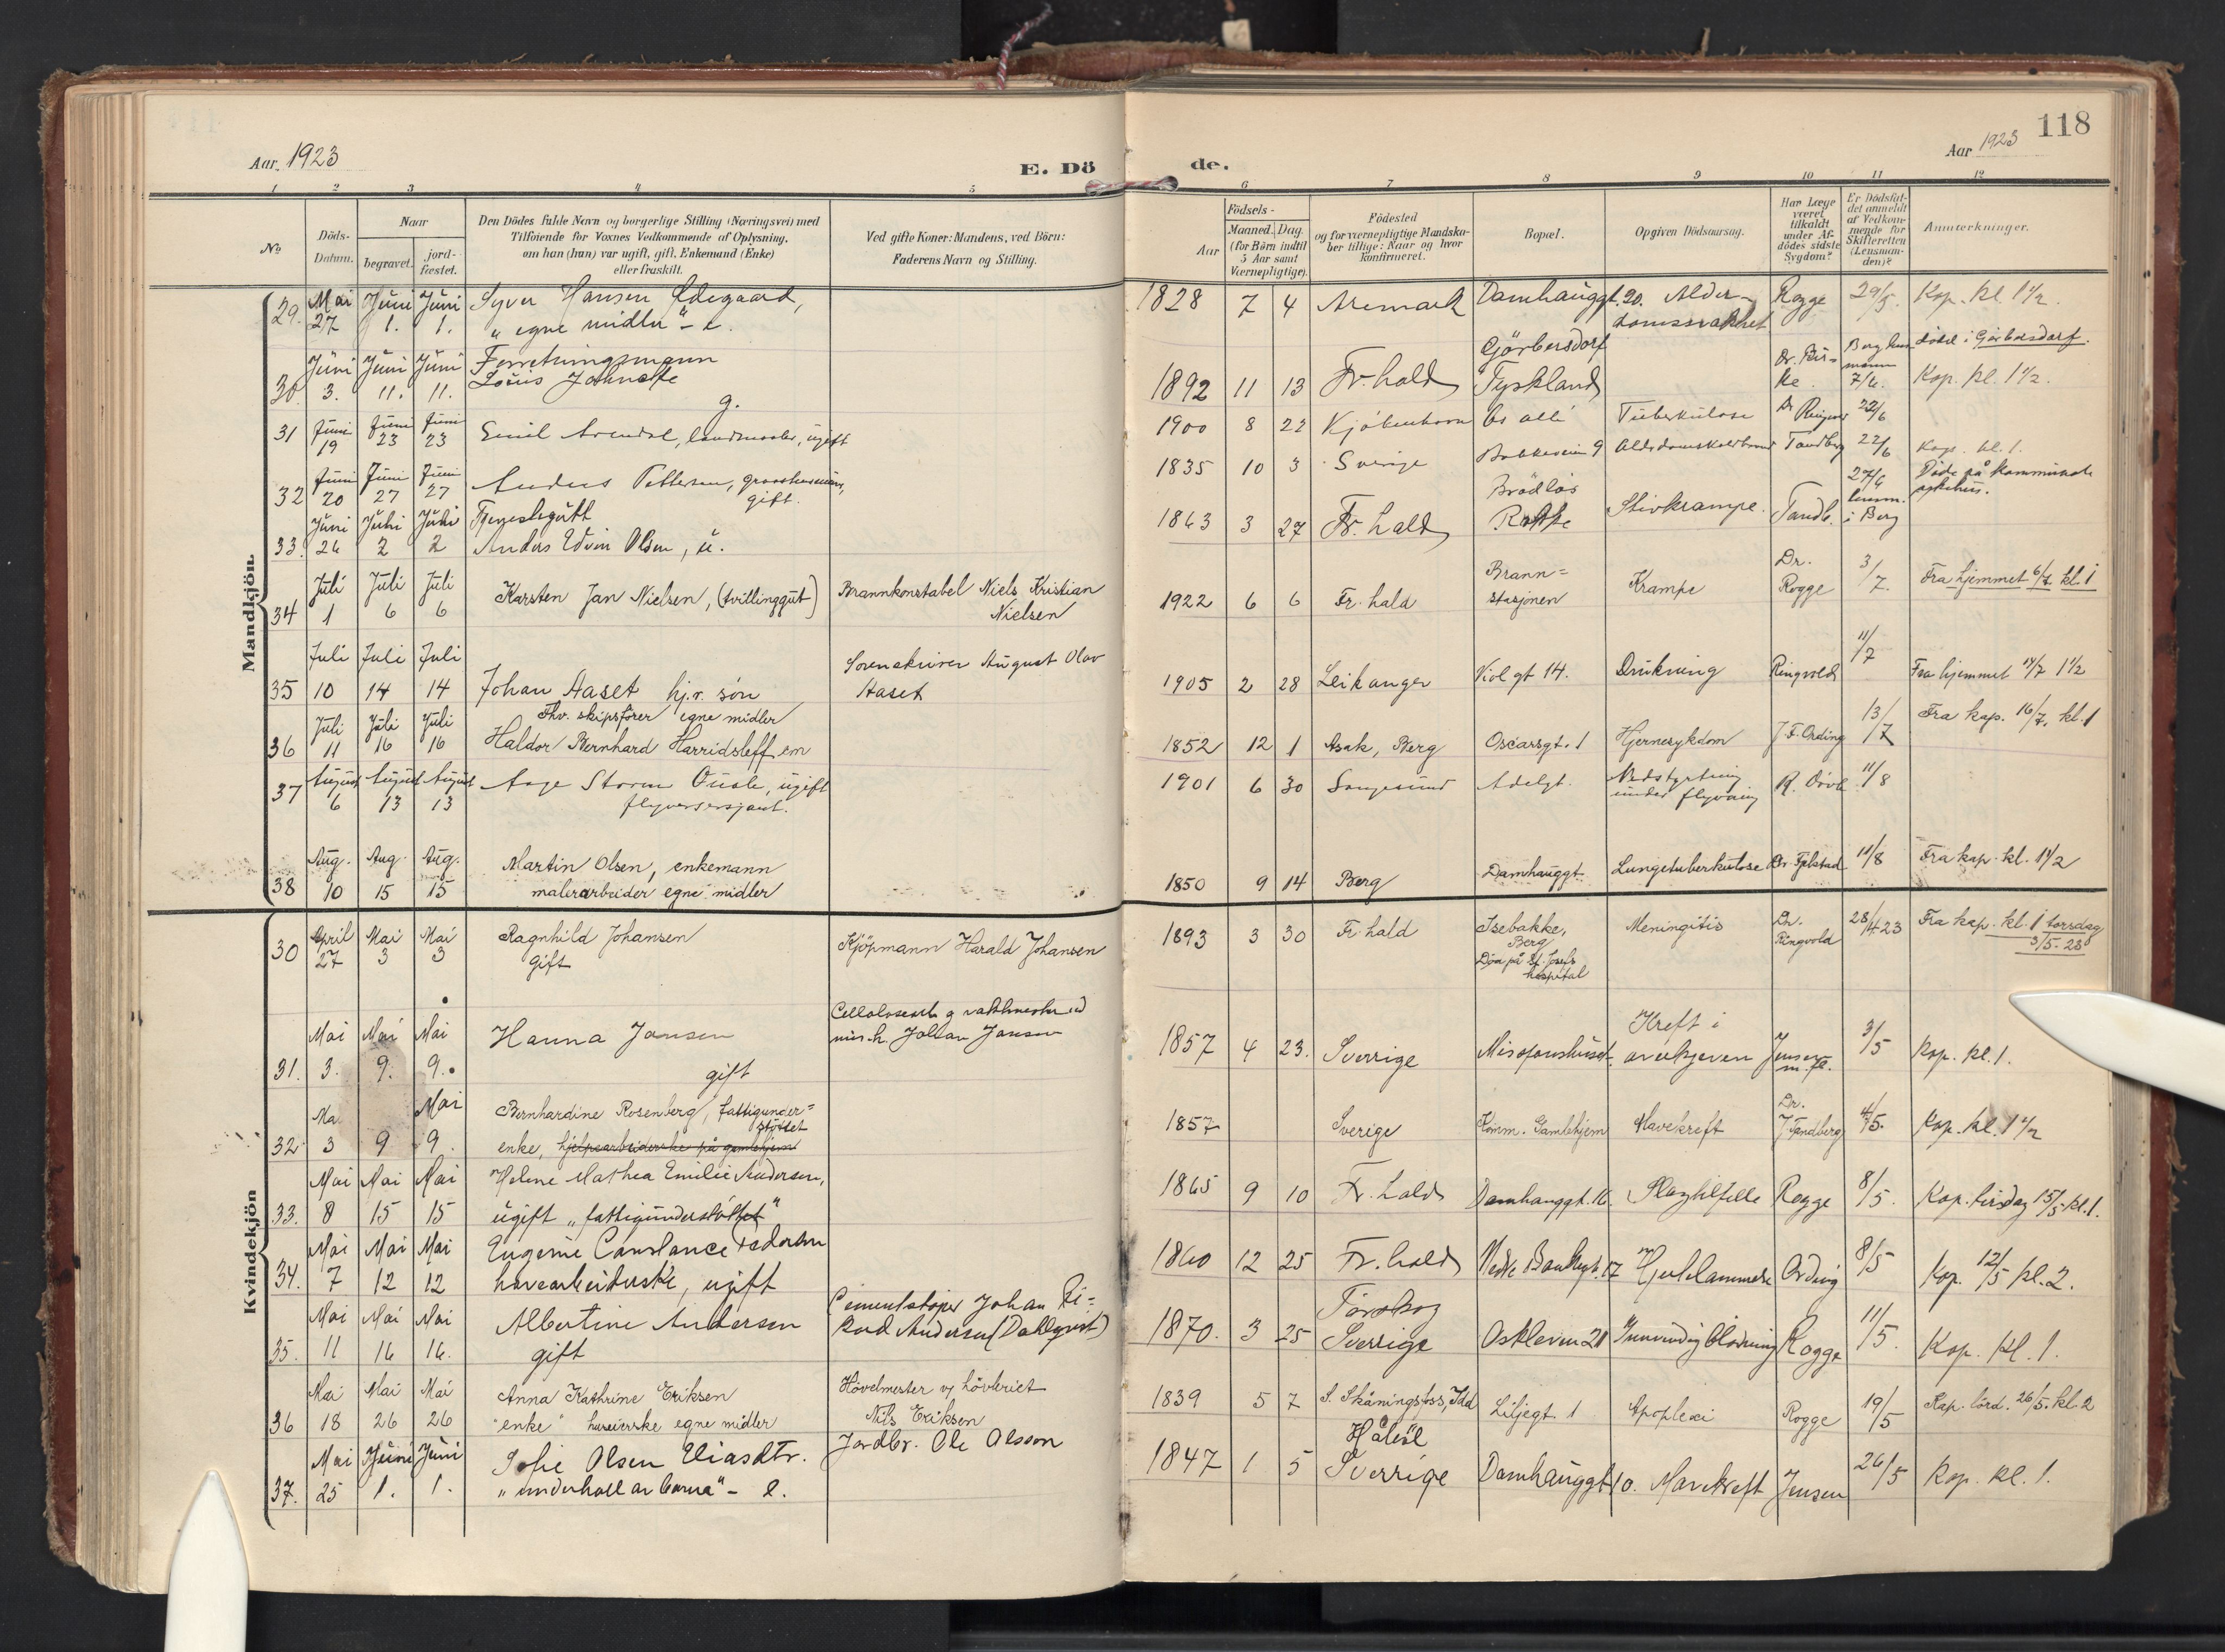 118
Aar 1923
E. Dö
de.
Aar 1923
1 2 3 4 5 6 7 8 9 10 11 12
No
Döds-
Datum.
Naar
begravet.
jord-
fæstet.
Den Dödes fulde Navn og borgerlige Stilling (Næringsvei) med
Tilföiende for Voxnes Vedkommende af Oplysning,
om han (hun) var ugift, gift, Enkemand (Enke)
eller fraskilt.
Ved gifte Koner: Mandens, ved Börn:
Faderens Navn og Stilling.
Födsels-
Aar
Maaned. Dag.
(for Börn indtil
5 Aar samt
Værnepligtige).
Födested
og for værnepligtige Mandska-
ber tillige: Naar og hvor
konfirmeret.
Bopæl.
Opgiven Dödsaarsag.
Har Læge
været
tilkaldt
under Af-
dödes sidste
Sygdom?
Er Dödsfal-
det anmeldt
af Vedkom-
mende for
Skifteretten
(Lensman-
den)?
Anmærkninger.
Mandkjön.
29. Mai 27 Juni 1. Juni 1. Syver Hansen Ødegaard,
"egne midler" - e.
1828 7 4 Aremark Damhauggt. 20. Alder-
domssvakhet Rogge 29/5. Kap. kl. 1 1/2.
30. Juni 3. Juni 11. Juni 11. Forretningsmann
Louis
g.
1892 11 13 Fr.hald Görbersdorf
Tyskland Dr. 7/6. död i Görbersdorf.
Kap. kl. 1 1/2.
31 Juni 19 Juni 23 Juni 23 Emil Arendal, ugift
1900 8 22 Kjöbenhavn Os allé Tuberkulose Dr 22/6
32 Juni 20 Juni 27 Juni 27 Anders Pettersen,
gift.
1835 10 3 Sverige 9 Tandberg 22/6 Kap. kl. 1.
33. Juni 26 Juli 2 Juli 2 Tjenestegutt
Anders Edvin Olsen, u.
1863 3 27 Fr.hald Brödlös
Rokke Stivkrampe. Tandb. 27/6
lensm.
i Berg Döde på kommunale
sykehus.
34 Juli 1 Juli 6 Juli 6 Karsten Jan Nielsen, (tvillinggut) Brannkonstabel Niels Kristian
Nielsen
1922 6 6 Fr.hald Brann=
stasjonen Krampe Dr.
Rogge 3/7. Fra hjemmet 6/7. kl. 1
35 Juli 10 Juli 14 Juli 14 Johan Aaset hj.v. sön Sorenskriver August Olav
Aaset
1905 2 28 Leikanger Violgt 14. Drukning Ringvold 11/7 Fra hjemmet 14/7 1 1/2
36 Juli 11 Juli 16 Juli 16 Fhv. skipsförer egne midler
Haldor Bernhard Harridsleff em
1852 12 1 Asak, Berg Oscarsgt. 1 Hjernesykdom J.F. Ording 13/7 Fra kap. 16/7. kl. 1
37 August 6 August 13 August 13 Aage Storm ugift
flyversersjant.
1901 6 30 Langesund Adelgt. Nedstyrtning
under flyvning 11/8
38 Aug. 10 Aug. 15 Aug. 15 Martin Olsen, enkemann
malerarbeider egne midler
1850 9 14 Berg Damhauggt Lungetuberkulose Dr. Fjelstad 11/8 Fra kap. kl. 1 1/2
Kvindekjön
30 April 27 Mai 3 Mai 3 Ragnhild Johansen
gift Kjöpmann Harald Johansen
1893 3 30 Fr.hald Isebakke,
Berg
Död på St. Josefs
hospital Meningitis Dr.
Ringvold 28/4 23 Fra kap. kl. 1 torsdag
3/5-23
31. Mai 3. Mai 9. Mai 9. Hanna Jansen
gift Johan Jansen
1857 4 23. Sverrige Misjonshuset. Kreft i
overkjeven Jensen
m. fl. 3/5 Kap. kl. 1.
32 Mai 3 9 Mai 9. Bernhardine Rosenberg, fattigunder=
stöttet
enke, hjelpearbeiderske på gamlehjem
1857 Sverige Komm. Gamlehjem Mavekreft Dr.
J Tandberg 4/5. Kap. kl. 1 1/2
33. Mai 8 Mai 15 Mai 15 Helene Mathea Emilie Andersen,
ugift "fattigunderstöttet"
1865 9 10 Fr.hald Damhauggt. 16. Slagtilfelle Rogge 8/5. Kap. tirsdag 15/5 kl. 1.
34. Mai 7 Mai 12 Mai 12 Eugenie Constance Pedersen
havearbeiderske, ugift
1860 12 25 Fr.hald Nedre Bankegt. 17 Hjertelammelse Ording 8/5 Kap. 12/5 kl. 2.
35. Mai 11 Mai 16 Mai 16. Albertine Andersen
gift Cementstöper Johan Ri=
kard Andersen (Dahlqvist)
1870. 3 25 Törskog
Sverrige Oskleven 21 Innvendig blödning Rogge 11/5. Kap. kl. 1.
36 Mai 18 Mai 26 Mai 26 Anna Kathrine Eriksen
"enke" huseierske egne midler Hövelmester v/ hövleriet
Nils Eriksen
1839 5 7 S. Skåningsfoss, Idd Liljegt. 1 Apoplexi Rogge 19/5 Kap. lörd. 26/5. kl. 2
37. Mai 25 Juni 1. Juni 1. Sofie Olsen Eliasdtr.
"underholl av barna" - e. Jordbr. Ole Olsson
1847 1 5 Håböl
Sverrige Damhauggt 10. Mavekreft Jensen 26/5 Kap. kl. 1.